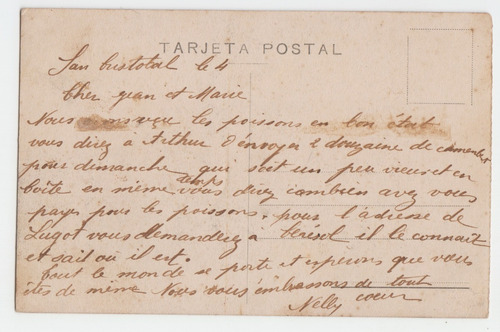 TARJETA POSTAL
San Cristobal le 4
Cher Jean et Marie
Nous avons reçu les poissons en bon état
vous direz a Arthur d'envoyer 2 douzaine de
pour dimanche qui soit un peu vieux et en
boîte en même temps vous direz combien avez vous
payer pour les poissons. pour l'adresse de
Lugot vous demanderez a il le connait
et sait ou il est.
tout le monde se porte et esperons que vous
êtes de même Nous vous embrassons de tout
coeur
Nelly